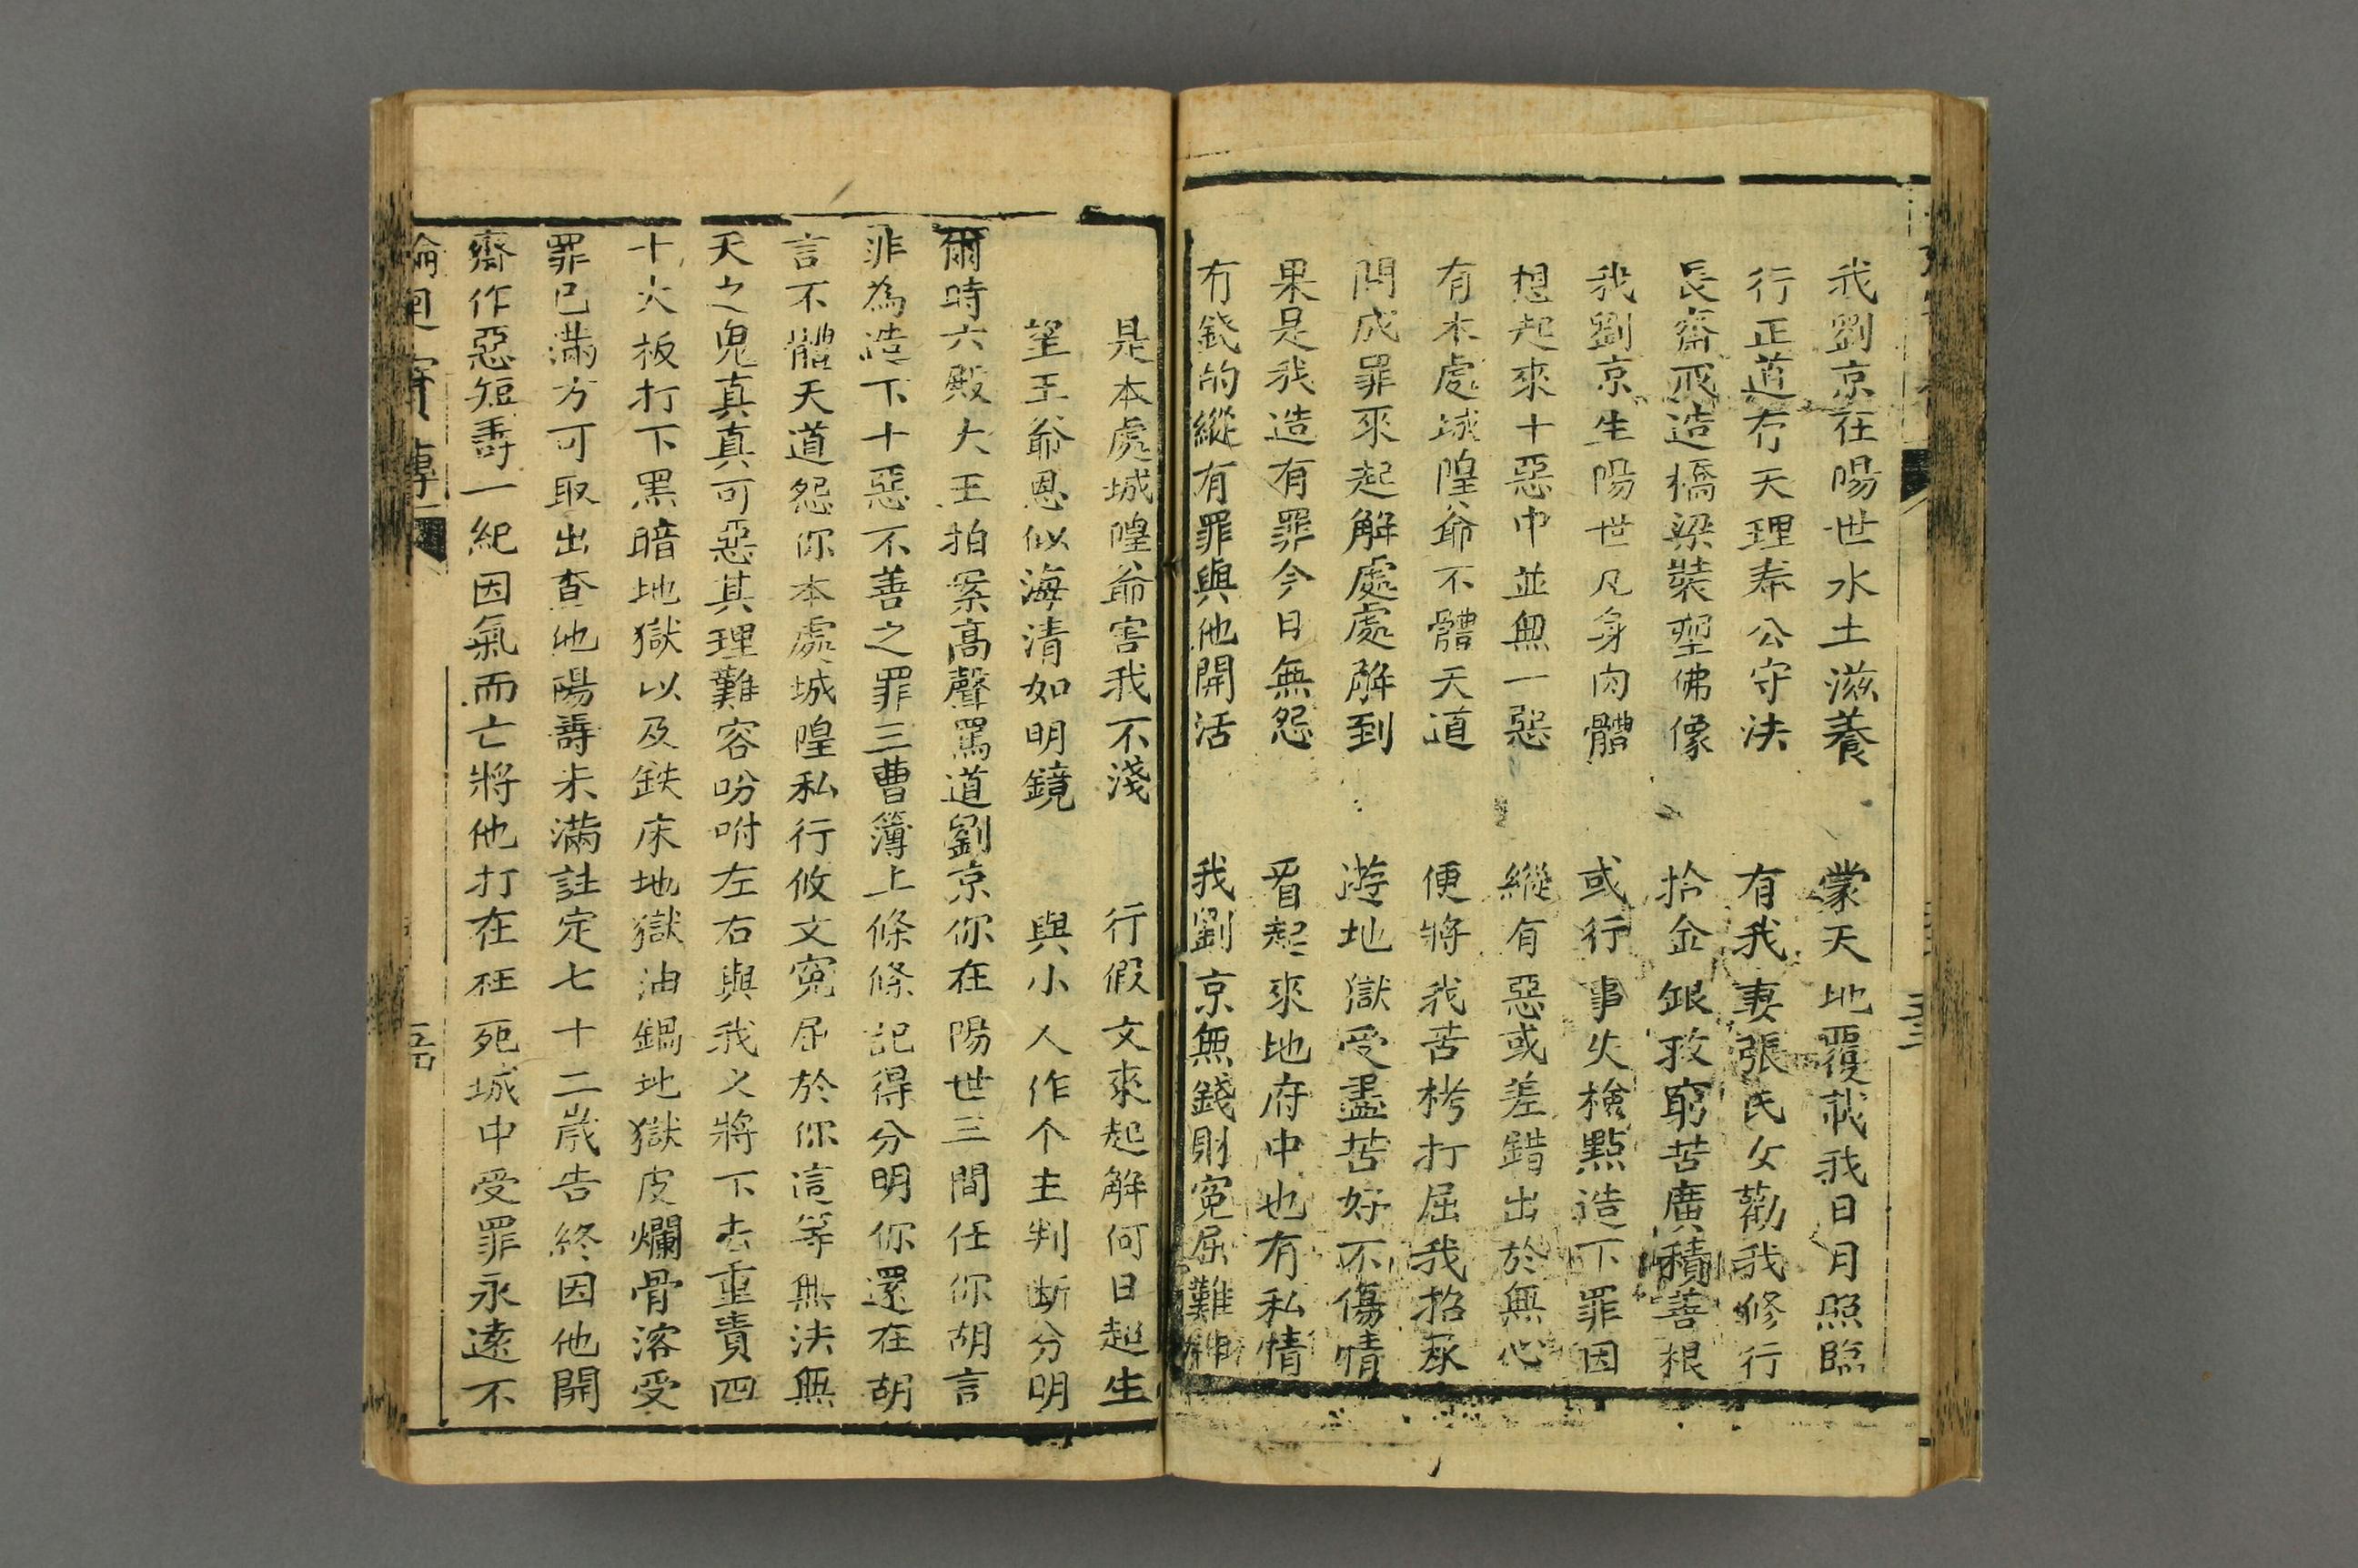 我劉京在陽世水土滋養 蒙天地覆載我日月照臨
行正道冇天理奉公守法 有我妻張氏女勸我修行
長齋戒造橋梁裝塑佛像 捨金銀救窮苦廣積善根
我劉京生陽世凡身肉體 或行事失檢點造下罪因
想起來十惡中並無一惡 縱有惡或差錯出於無心
有本處城隍爺不體天道 便將我苦栲打屈我招承
問成罪來起解處處解到 遊地獄受盡苦好不傷情
果是我造有罪今日無怨 看起來地府中也有私情
冇錢的縱有罪與他開活 我劉京無錢財寃屈難伸
是本處城隍爺害我不淺 行假文來起解何日起生
望王爺恩似海清如明鏡 與小人作个主判斷分明
爾時六殿大王拍案高聲罵道劉京你在陽世三間任你胡言
非為造下十惡不善之罪三曹簿上條條記得分明你還在胡
言不體天道怨你本處城隍私行攸文寃屈於你這等無法無
天之鬼真真可惡其理難容吩咐左右與我乂將下去重責四
十大板打下黑暗地獄以及鉄床地獄油鍋地獄皮爛骨溶受
罪已滿方可取出查他陽壽未滿註定七十二歲告終因他開
齋作惡短壽一紀因氣而亡將他打在枉死城中受罪永遠不
輪迴寶傳